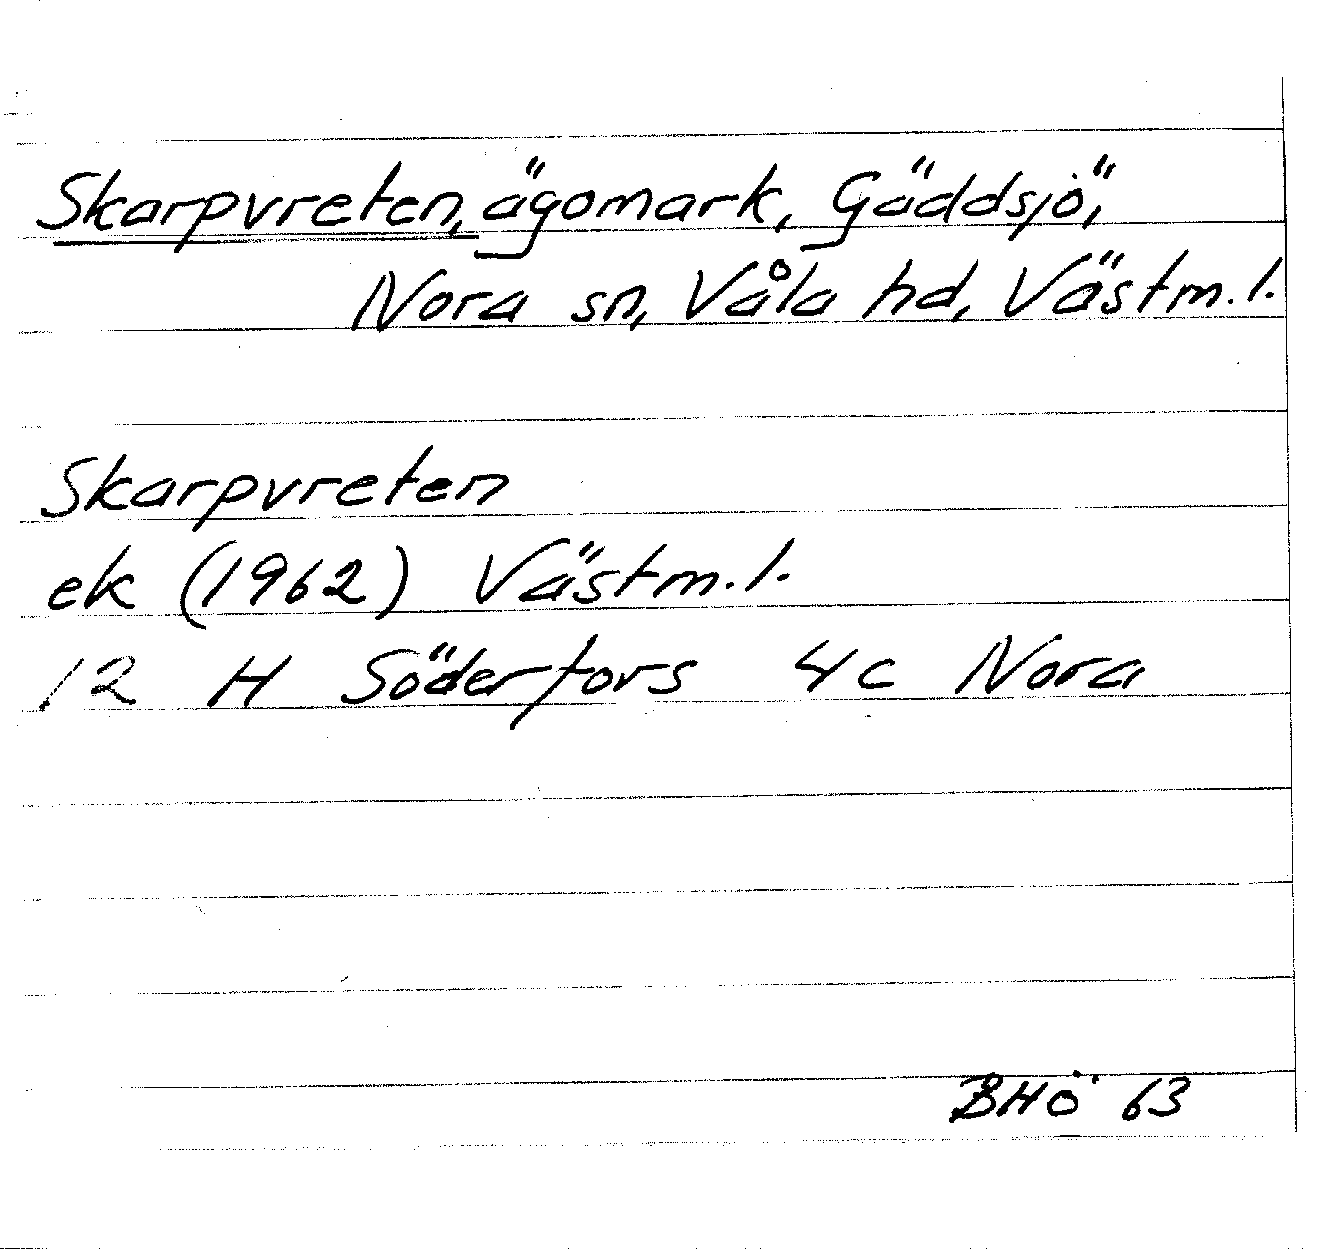 Skarpvreten, ägomark, Gäddsjö,
Nora sn, Våla hd, Västm.l.
Skarpvreten
ek (1962) Västm.l.
12 H Söderfors 4c Nora
BHÖ 63